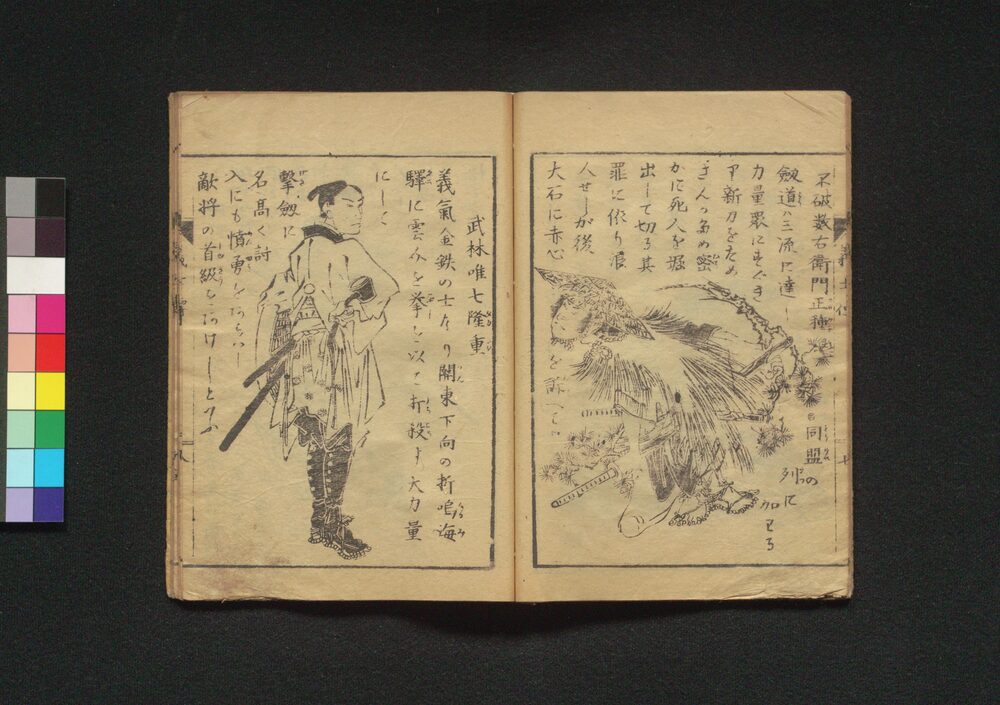 不破数右衛門正種
劔道ハ三流に達し
力量衆にすぐれ
甲新刀をため
さんため密
かに死人を堀
出して切る其
罪に依り浪
人せしが後
大石に赤心
を訴へて
同盟の
列に
加わる
武林唯七隆重
義氣金鉄の士なり関東下向の折鳴海
驛に雲介を拳を以て打殺す大力量
にして
撃劔に
名髙く討
入にも憤勇をあらハし
敵将の首級をあげしと云ふ